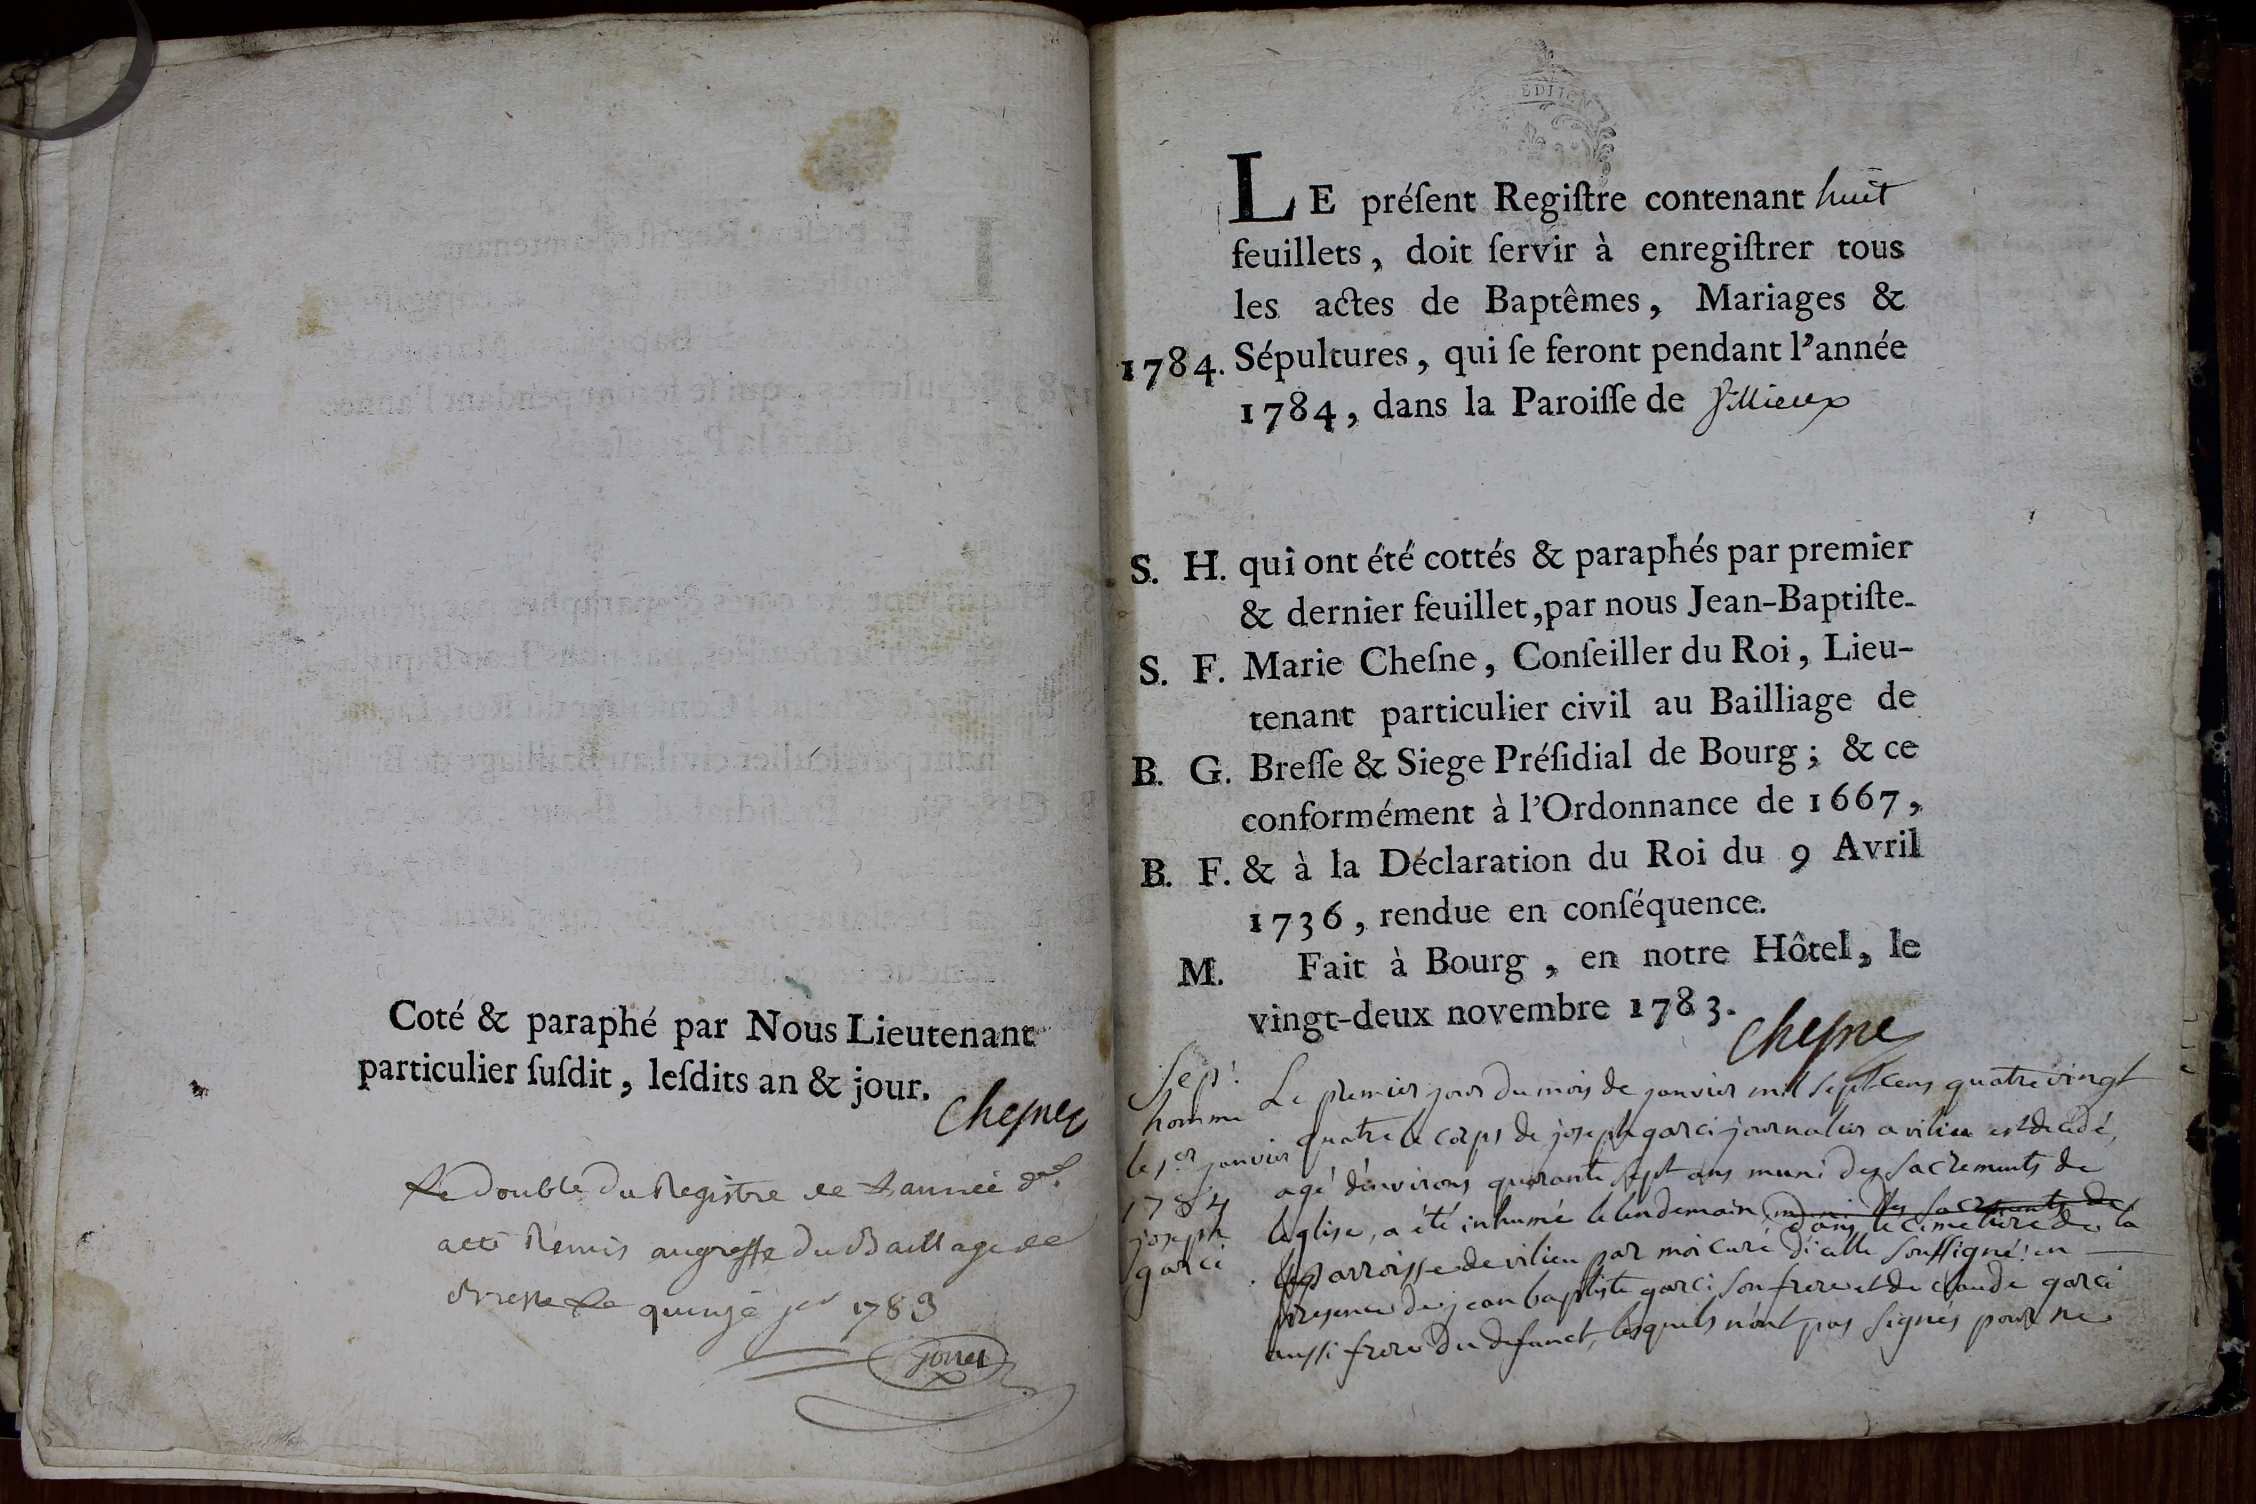 Coté & paraphé par Nous Lieutenant
particulier ſuſdit, leſdits an & jour.
Cheſne
Le double du Registre de L'année dre
a été Remis au greffe du Bailliage de
Bresse Le quinze jer 1783
LE préſent Regiſtre contenant huit
feuillets, doit ſervir à enregiſtrer tous
les actes de Baptêmes, Mariages &
1784. Sépultures, qui ſe feront pendant l'année
1784, dans la Paroiſſe de Villieux
S. H. qui ont été cottés & paraphés par premier
& dernier feuillet, par nous Jean-Baptiſte-
S. F. Marie Cheſne, Conſeiller du Roi, Lieu-
tenant particulier civil au Bailliage de
B. G. Breſſe & Siege Préſidial de Bourg; & ce
conformément à l'Ordonnance de 1667,
B. F. & à la Déclaration du Roi du 9 Avril
1736, rendue en conſéquence.
M. Fait à Bourg, en notre Hôtel, le
vingt-deux novembre 1783.
Cheſne
Sep!
homme
le 1er janvier
1784
joseph
garci
Le premier jour du mois de janvier mil sept cens quatre vingt
quatre le corps de joseph garci journalier a vilieu est decedé,
agé d'environs quarante sept ans muni des sacrements de
leglise, a été inhumé le lendemain muni des sacrements de
dans le cimetiere de la
parroisse de vilieu par moi curé d'icelle soussigné: en
presence de jean baptiste garci son frere et de claude garci
aussi frere du defunct, lesquels n'ont pas signés pour ne